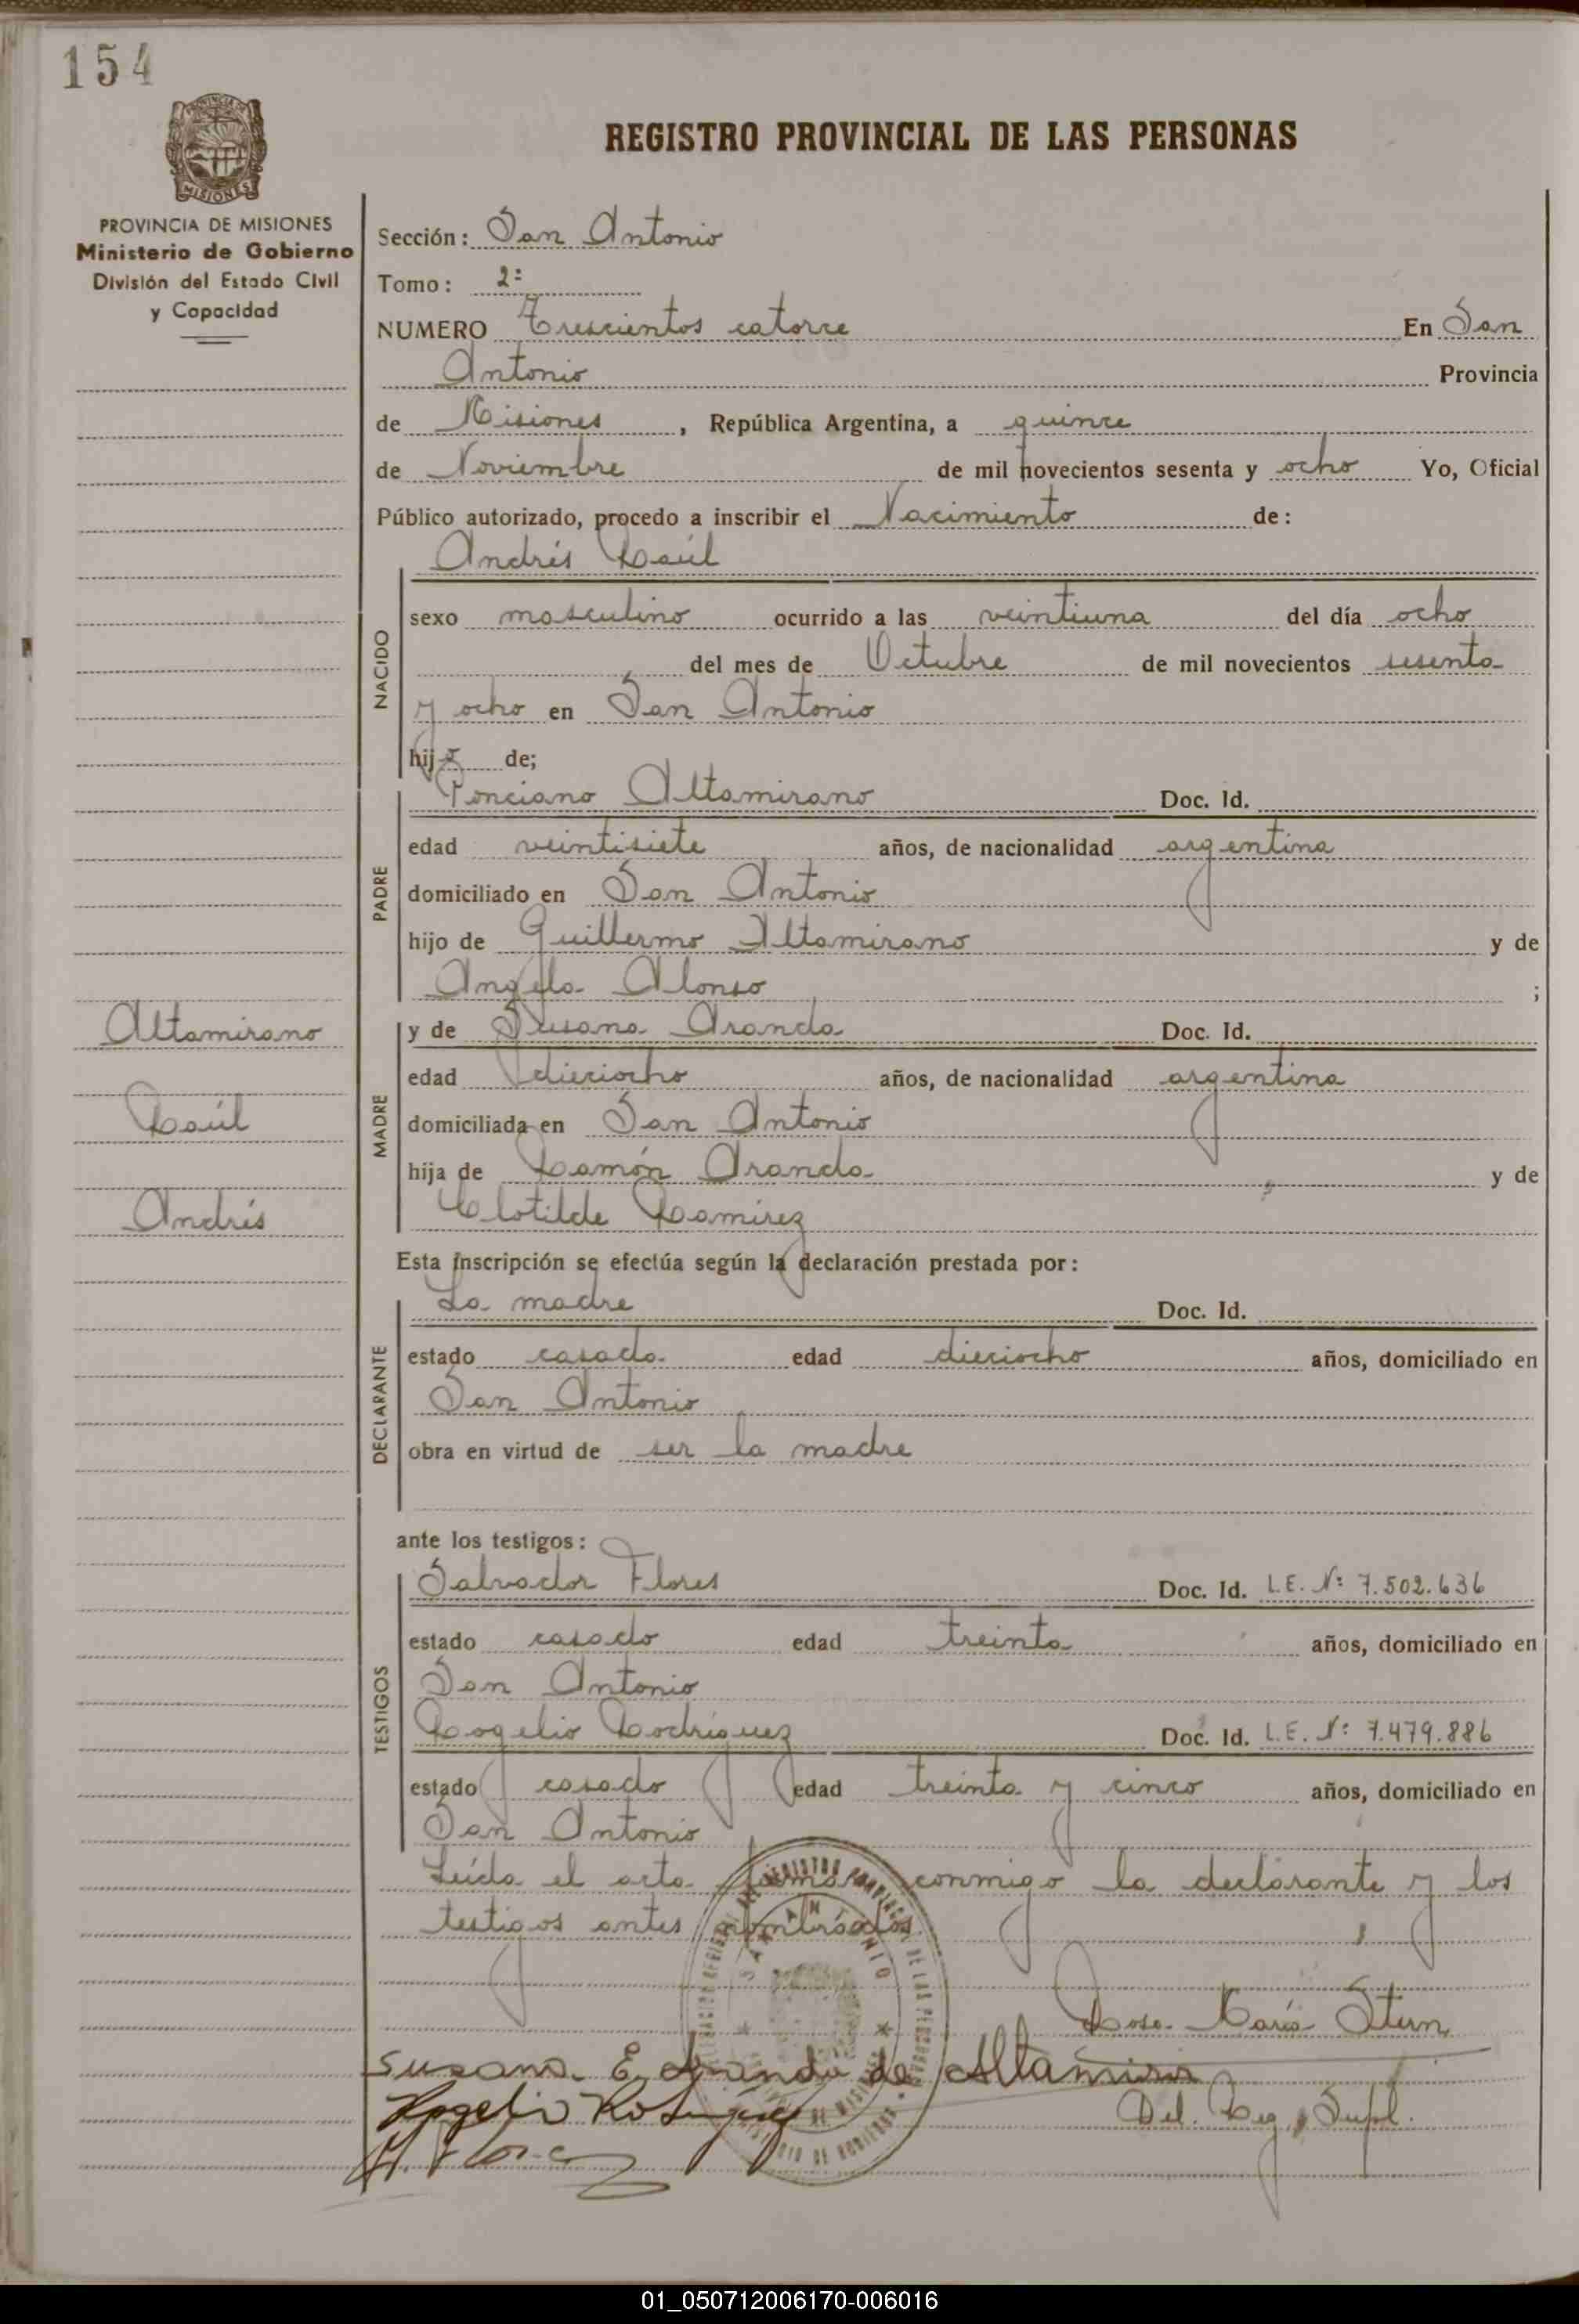 154
PROVINCIA DE MISIONES
MISIONES
PROVINCIA DE MISIONES
Ministerio de Gobierno
División del Estado Civil
y Capacidad
REGISTRO PROVINCIAL DE LAS PERSONAS
Sección: San Antonio
Tomo: 2:
NUMERO Trescientos catorce En San
Antonio Provincia
de Misiones, República Argentina, a quince
de Noviembre de mil novecientos sesenta y ocho Yo, Oficial
Público autorizado, procedo a inscribir el Nacimiento de:
Andrés Raúl
NACIDO
sexo masculino ocurrido a las veintiuna del día ocho
del mes de Octubre de mil novecientos sesenta
y ocho en San Antonio
hijo de;
PADRE
Ponciano Altamirano Doc. Id.
edad veintisiete años, de nacionalidad argentina
domiciliado en San Antonio
hijo de Guillermo Altamirano y de
Angela Alonso ;
MADRE
y de Susana Aranda Doc. Id.
edad dieciocho años, de nacionalidad argentina
domiciliada en San Antonio
hija de Ramón Aranda y de
Clotilde Ramírez
Altamirano
Raúl
Andrés
Esta inscripción se efectúa según la declaración prestada por:
DECLARANTE
La madre Doc. Id.
estado casada edad dieciocho años, domiciliado en
San Antonio
obra en virtud de ser la madre
ante los testigos:
TESTIGOS
Salvador Flores Doc. Id. L.E. Nº 7.502.636
estado casado edad treinta años, domiciliado en
San Antonio
Rogelio Rodríguez Doc. Id. L.E. Nº 7.479.886
estado casado edad treinta y cinco años, domiciliado en
San Antonio
Leída el acta firman conmigo la declarante y los
testigos antes nombrados
SAN ANTONIO
Rosa María Stern
Susana E. Aranda de Altamirano
Rogelio Rodriguez
Del. Reg. Supl.
01_050712006170-006016